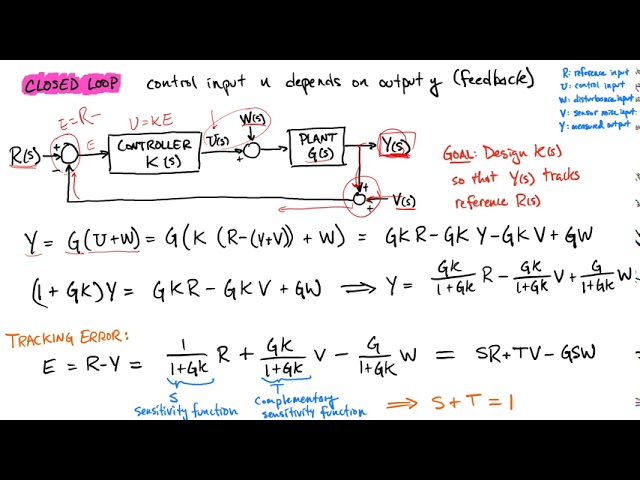 CLOSED LOOP control input u depends on output y (feedback)
R: reference input
U: control input
W: disturbance input
V: sensor noise input
Y: measured output
E=R-
U=KE
W(s)
R(s) + - E CONTROLLER K(s) U(s) + + PLANT G(s) Y(s)
+ + V(s)
GOAL: Design K(s)
so that Y(s) tracks
reference R(s)
Y = G(U+W) = G(K (R-(Y+V)) + W) = GKR-GKY-GKV+GW
(1+GK)Y = GKR-GKV+GW ⟹ Y = GK/1+GK R - GK/1+GK V + G/1+GK W
TRACKING ERROR:
E = R-Y = 1/1+GK R + GK/1+GK V - G/1+GK W = SR+TV-GSW
S sensitivity function
T complementary sensitivity function
⟹ S+T=1